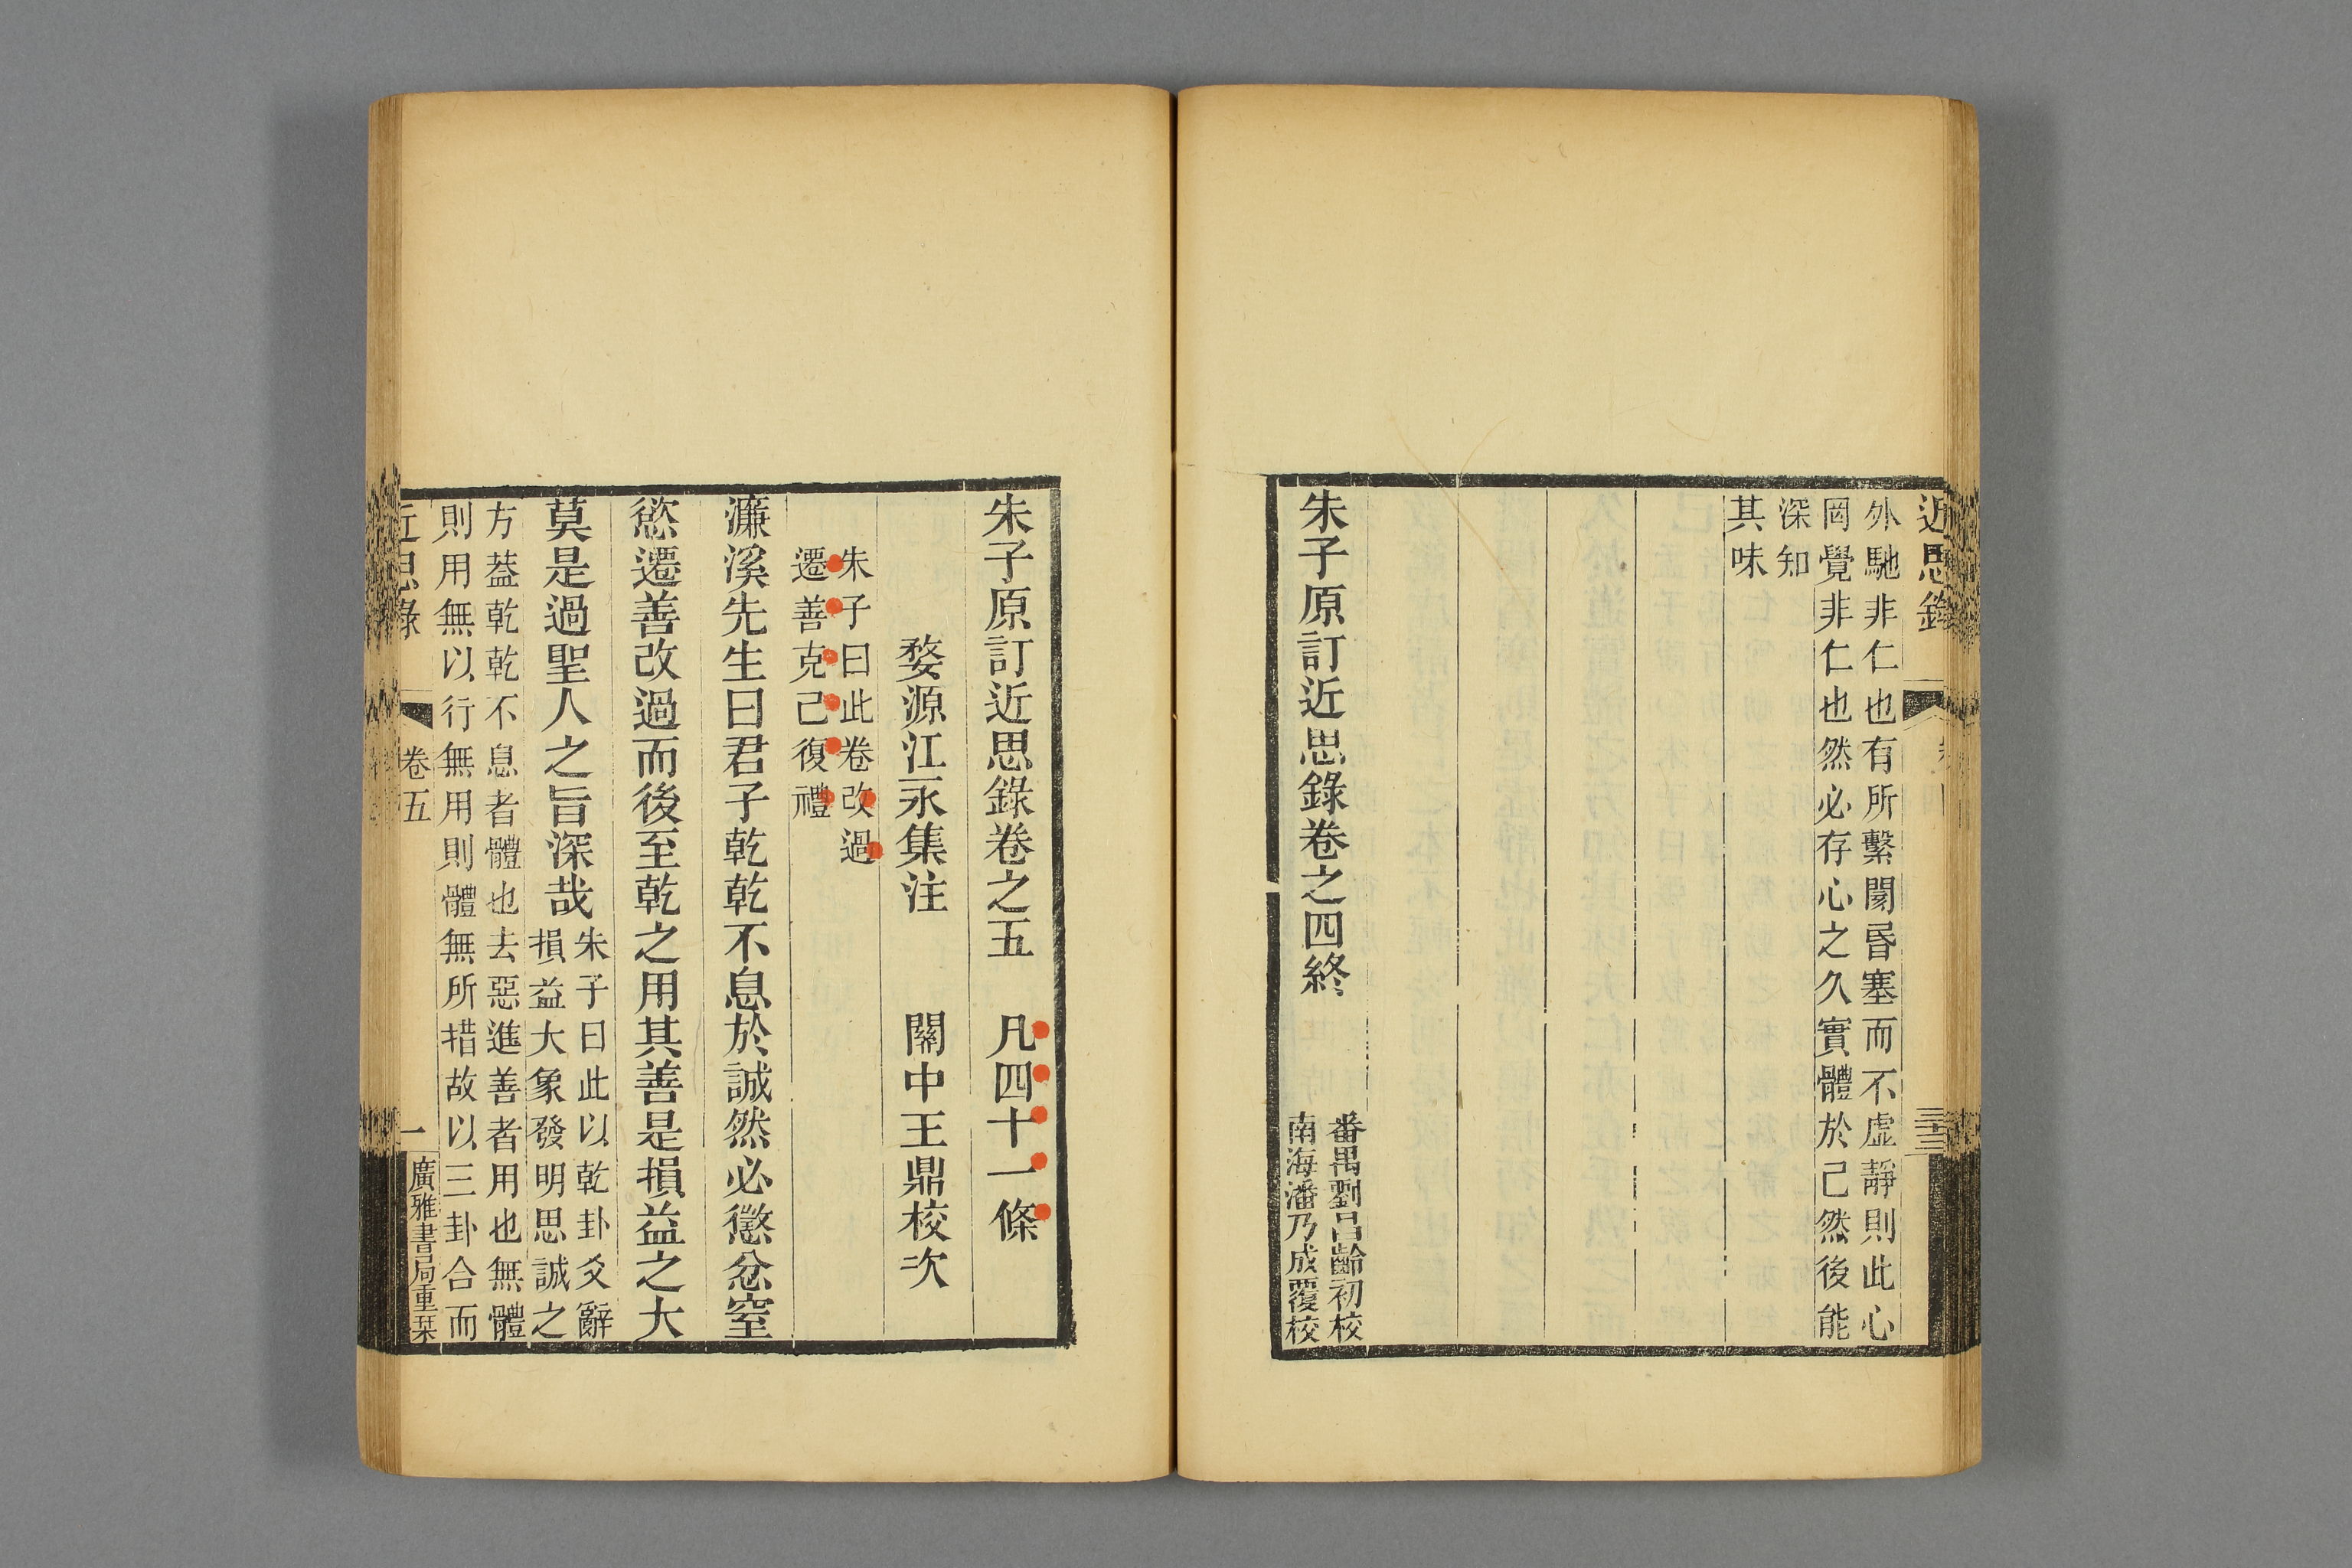 近思錄
三十三
外馳非仁也有所繫閡昬塞而不虛靜則此心
罔覺非仁也然必存心之久實體於己然後能
深知
其味
朱子原訂近思錄卷之四終
番禺劉昌齡初校
南海潘乃成覆校
朱子原訂近思錄卷之五 凡四十一條
婺源江永集注 關中王鼎校次
朱子曰此卷改過
遷善克己復禮
濂溪先生曰君子乾乾不息於誠然必懲忿窒
慾遷善改過而後至乾之用其善是損益之大
莫是過聖人之旨深哉
朱子曰此以乾卦爻辭
損益大象發明思誠之
方葢乾乾不息者體也去惡進善者用也無體
則用無以行無用則體無所措故以三卦合而
近思錄 卷五 一 廣雅書局重栞